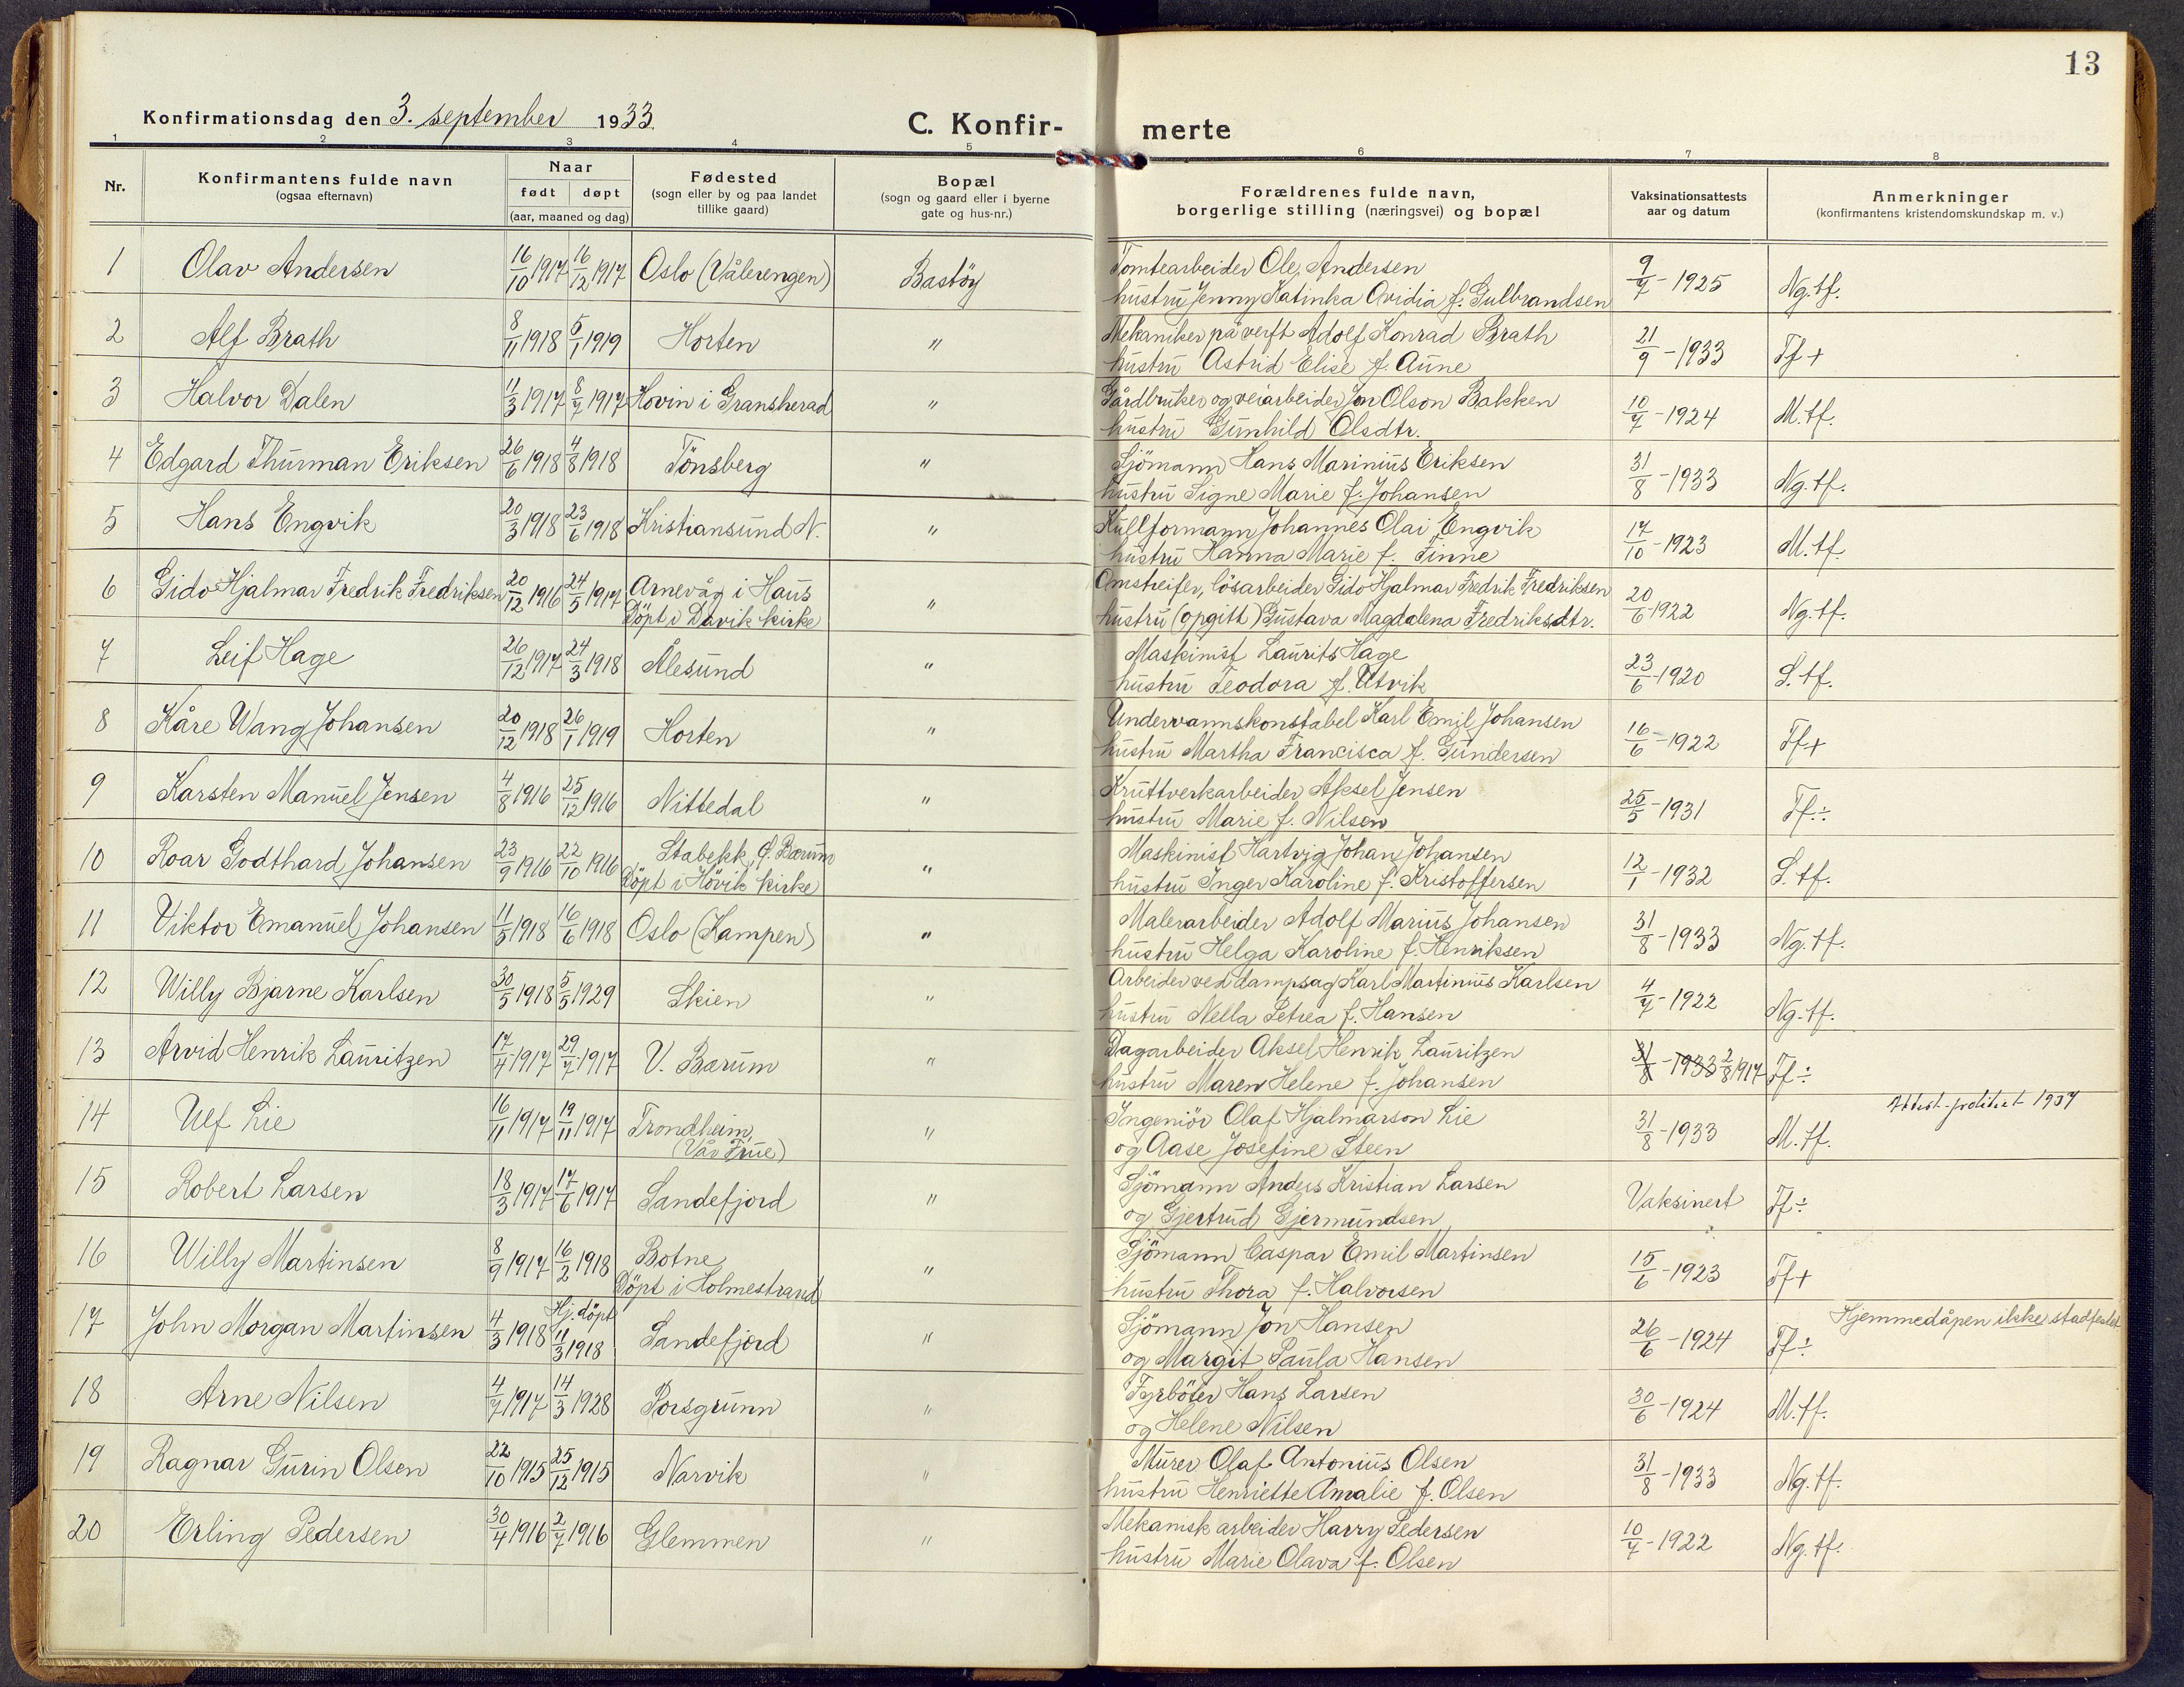 13
Konfirmationsdag den 3. september 1933.
C. Konfir-
merte
1 2 3 4 5 6 7 8
Nr.
Konfirmantens fulde navn
(ogsaa efternavn)
Naar
født døpt
(aar, maaned og dag)
Fødested
(sogn eller by og paa landet
tillike gaard)
Bopæl
(sogn og gaard eller i byerne
gate og hus-nr.)
Forældrenes fulde navn,
borgerlige stilling (næringsvei) og bopæl
Vaksinationsattests
aar og datum
Anmerkninger
(konfirmantens kristendomskundskap m. v.)
1 Olav Andersen 16/10 1917 16/12 1917 Oslo (Vålerengen) Bastöy
Tomtearbeider Ole Andersen
hustru Jenny Katinka Ovidia f. Gulbrandsen 9/7 - 1925 Ng. tf.
2 Alf Brath 8/11 1918 5/1 1919 Horten "
Mekaniker på verft Adolf Konrad Brath
hustru Astrid Elise f. Aune 21/9 - 1933 Tf +
3 Halvor Dalen 11/3 1917 8/7 1917 Hovin i Gransherad "
Gårdbruker og veiarbeider Jon Olson Bakken
hustru Gunhild Olsdtr. 10/7 - 1924 M. tf.
4 Edgard Thurman Eriksen 26/6 1918 4/8 1918 Tönsberg "
Sjömann Hans Marinius Eriksen
hustru Signe Marie f. Johansen 31/8 - 1933 Ng. tf.
5 Hans Engvik 20/3 1918 23/6 1918 Kristiansund N. "
Kullformann Johannes Olai Engvik
hustru Hanna Marie f. Finne 17/10 - 1923 M. tf.
6 Gido Hjalmar Fredrik Fredriksen 20/12 1916 24/5 1917 Arnevåg i Haus
Döpt i Davik kirke "
Omstreifer, lösarbeider Gido Hjalmar Fredrik Fredriksen
hustru (opgitt) Gustava Magdalena Fredriksdtr. 20/6 1922 Ng. tf.
7 Leif Hage 26/12 1917 24/3 1918 Ålesund "
Maskinist Laurits Hage
hustru Teodora f. Utvik 23/6 - 1920 S. tf.
8 Kåre Wang Johansen 20/12 1918 26/1 1919 Horten "
Undervannskonstabel Karl Emil Johansen
hustru Martha Francisca f. Gundersen 16/6 - 1922 Tf +
9 Karsten Manuel Jensen 4/8 1916 25/12 1916 Nittedal "
Kruttverkarbeider Aksel Jensen
hustru Marie f. Nilsen 25/5 - 1931 Tf ÷
10 Roar Godthard Johansen 23/9 1916 22/10 1916 Stabekk, Ö. Bærum
Döpt i Hövik kirke "
Maskinist Hartvig Johan Johansen
hustru Inger Karoline f. Kristoffersen 12/1 - 1932 S. tf.
11 Viktor Emanuel Johansen 11/5 1918 16/6 1918 Oslo (Kampen) "
Malerarbeider Adolf Marius Johansen
hustru Helga Karoline f. Henriksen 31/8 - 1933 Ng. tf.
12 Willy Bjarne Karlsen 30/5 1918 5/5 1929 Skien "
Arbeider ved dampsag Karl Martinius Karlsen
hustru Nella Petrea f. Hansen 4/7 - 1922 Ng. tf.
13 Arvid Henrik Lauritzen 17/4 1917 29/7 1917 V. Bærum "
Dagarbeider Aksel Henrik Lauritzen
hustru Maren Helene f. Johansen 31/8 - 1933 2/8 1917 Tf ÷
14 Ulf Lie 16/11 1917 19/11 1917 Trondheim,
(Vår Frue) "
Ingeniör Olaf Hjalmarson Lie
og Aase Josefine Steen 31/8 - 1933 M. tf.
15 Robert Larsen 18/3 1917 17/6 1917 Sandefjord "
Sjömann Anders Kristian Larsen
og Gjertrud Gjermundsen Vaksinert Tf ÷
16 Willy Martinsen 8/9 1917 16/2 1918 Botne
Döpt i Holmestrand "
Sjömann Caspar Emil Martinsen
hustru Thora f. Halvorsen 15/6 - 1923 Tf +
17 John Morgan Martinsen 4/3 1918 Hj. döpt 11/3 1918 Sandefjord "
Sjömann Jon Hansen
og Margit Paula Hansen 26/6 - 1924 Tf ÷ Hjemmedåpen ikke stadfestet
18 Arne Nilsen 4/7 1917 14/3 1928 Porsgrunn "
Fyrböter Hans Larsen
og Helene Nilsen 30/6 - 1924 M. tf.
19 Ragnar Gurin Olsen 22/10 1915 25/12 1915 Narvik "
Murer Olaf Antonius Olsen
hustru Henriette Amalie f. Olsen 31/8 - 1933 Ng. tf.
20 Erling Pedersen 30/4 1916 2/7 1916 Glemmen "
Mekanisk arbeider Harry Pedersen
hustru Marie Olava f. Olsen 10/7 - 1922 Ng. tf.